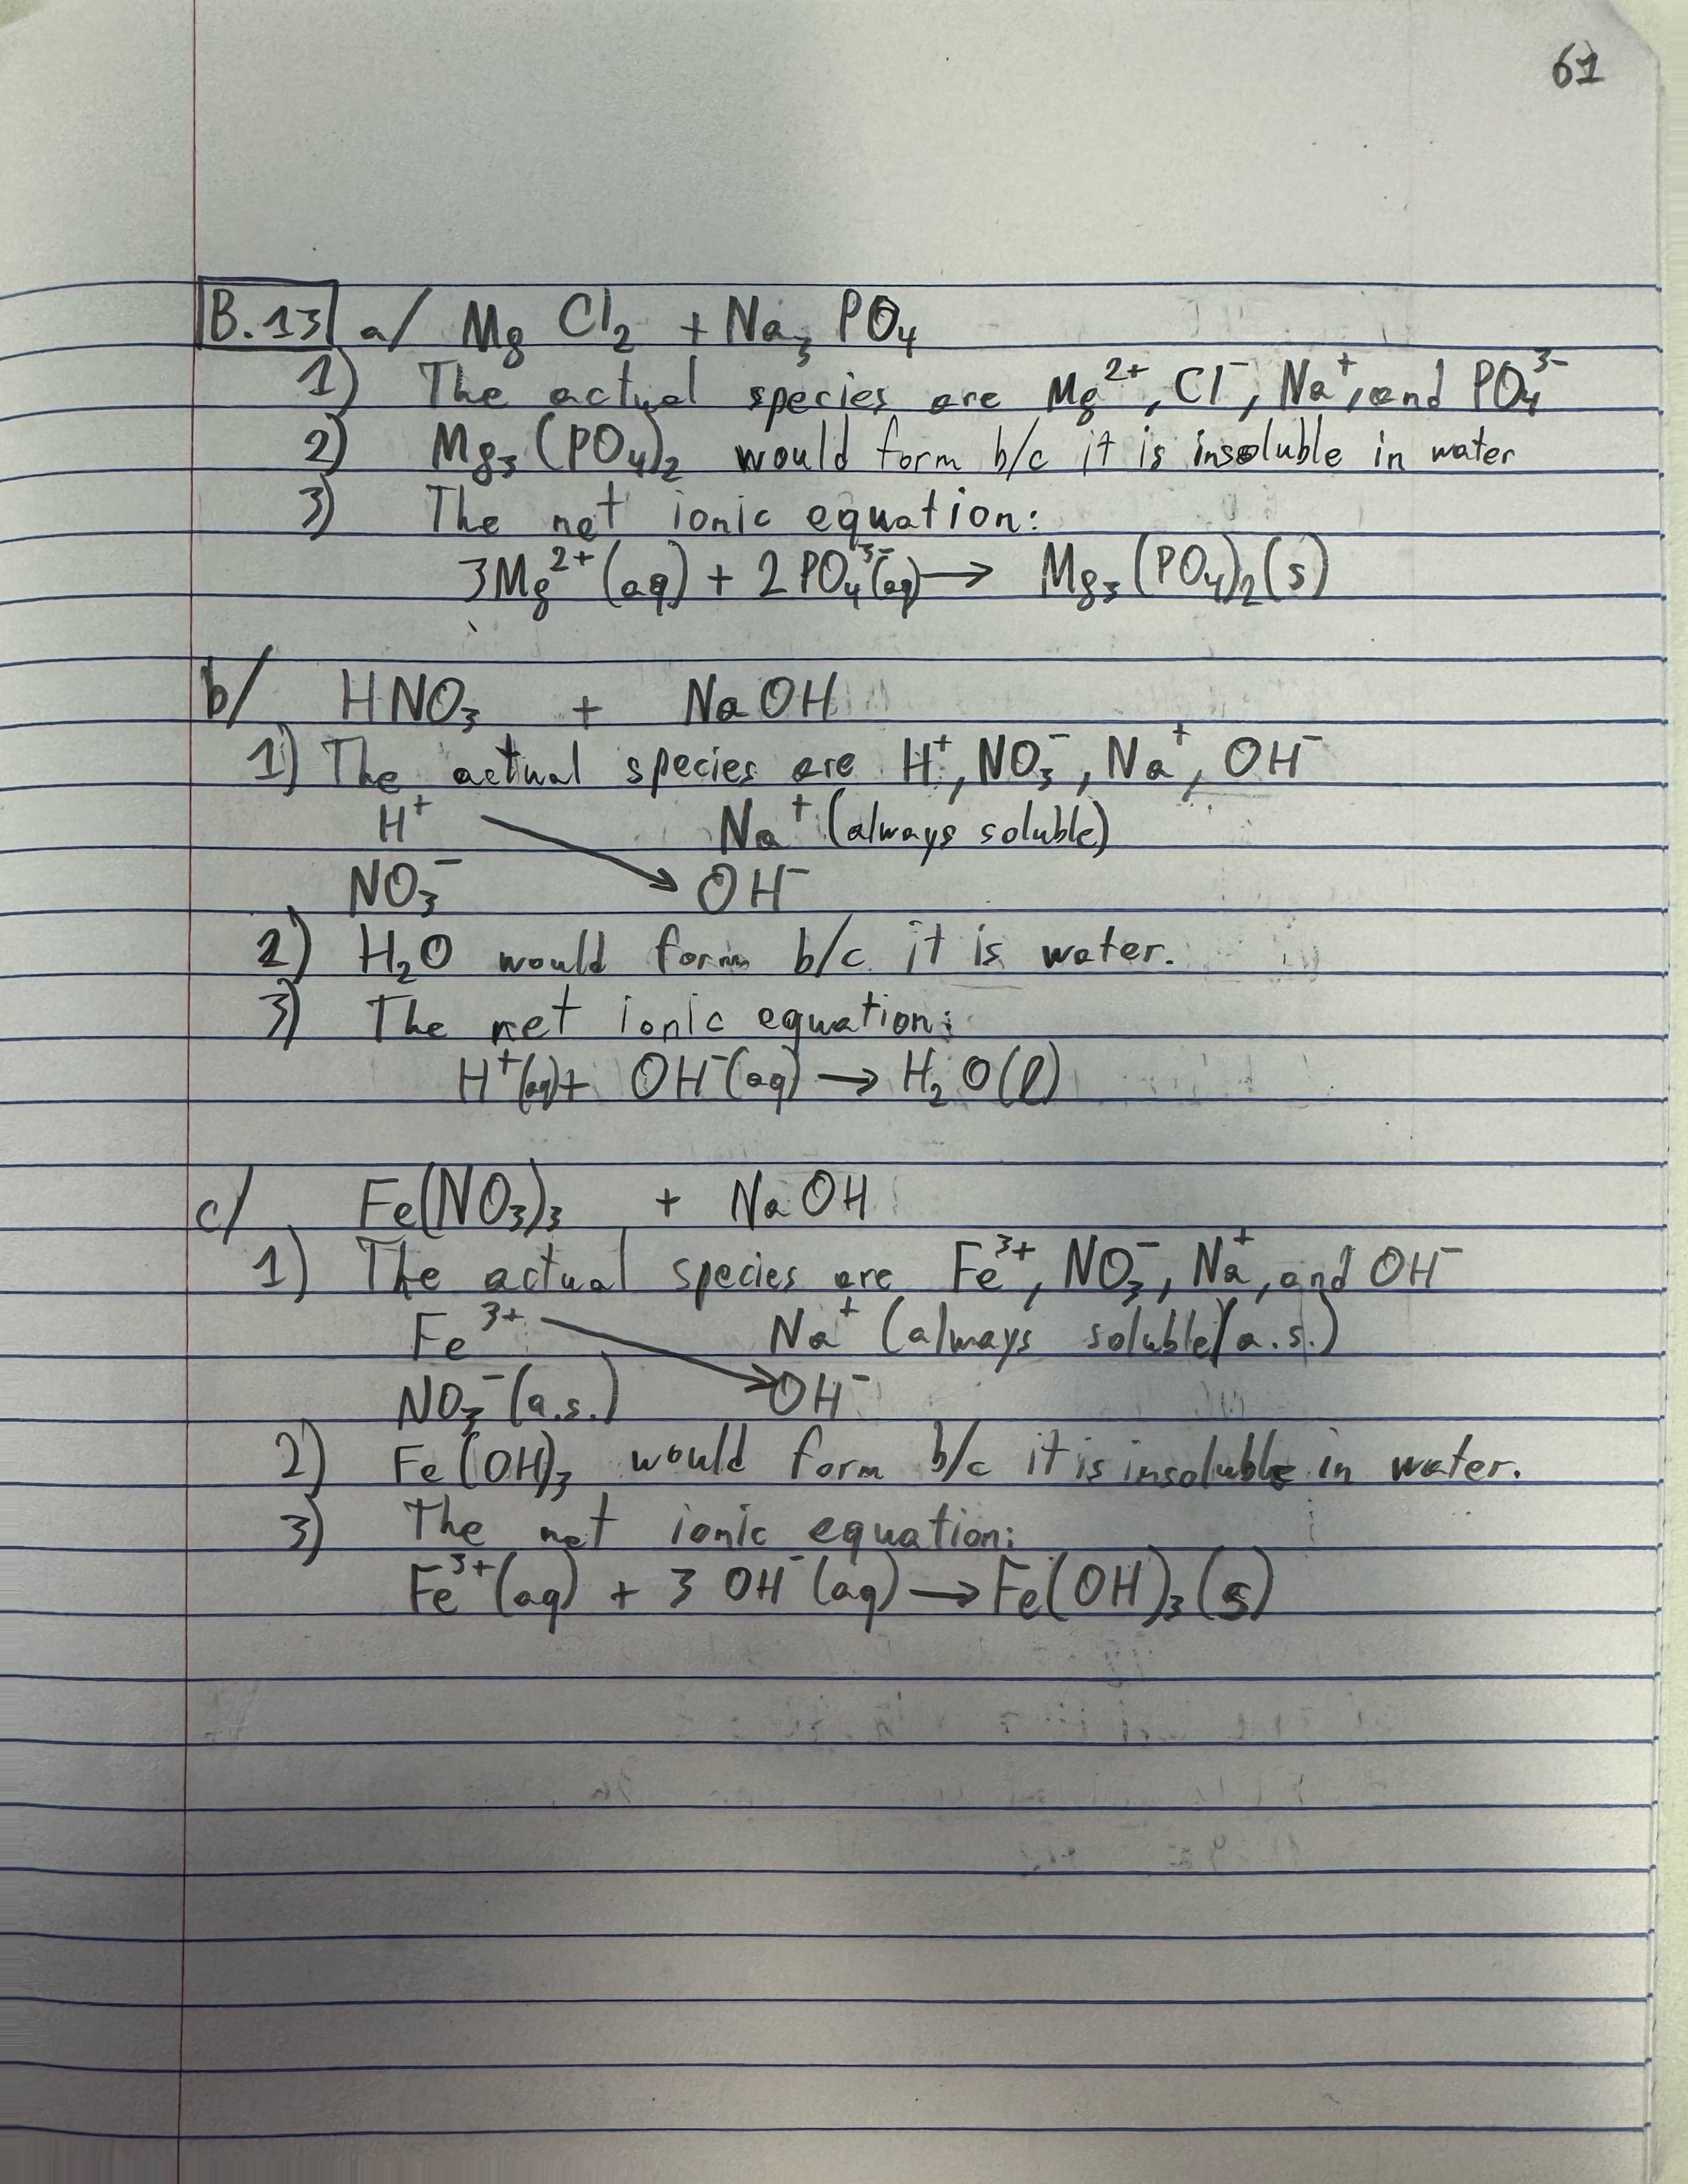 61
B.13 a/ MgCl₂ + Na₃PO₄
1) The actual species are Mg²⁺, Cl⁻, Na⁺, and PO₄³⁻
2) Mg₃(PO₄)₂ would form b/c it is insoluble in water
3) The net ionic equation:
3Mg²⁺(aq) + 2PO₄³⁻(aq) → Mg₃(PO₄)₂(s)
b/ HNO₃ + NaOH
1) The actual species are H⁺, NO₃⁻, Na⁺, OH⁻
H⁺ Na⁺ (always soluble)
NO₃⁻ → OH⁻
2) H₂O would form b/c it is water.
3) The net ionic equation:
H⁺(aq) + OH⁻(aq) → H₂O(l)
c/ Fe(NO₃)₃ + NaOH
1) The actual species are Fe³⁺, NO₃⁻, Na⁺, and OH⁻
Fe³⁺ Na⁺ (always soluble/a.s.)
NO₃⁻ (a.s.) → OH⁻
2) Fe(OH)₃ would form b/c it is insoluble in water.
3) The net ionic equation:
Fe³⁺(aq) + 3 OH⁻(aq) → Fe(OH)₃(s)